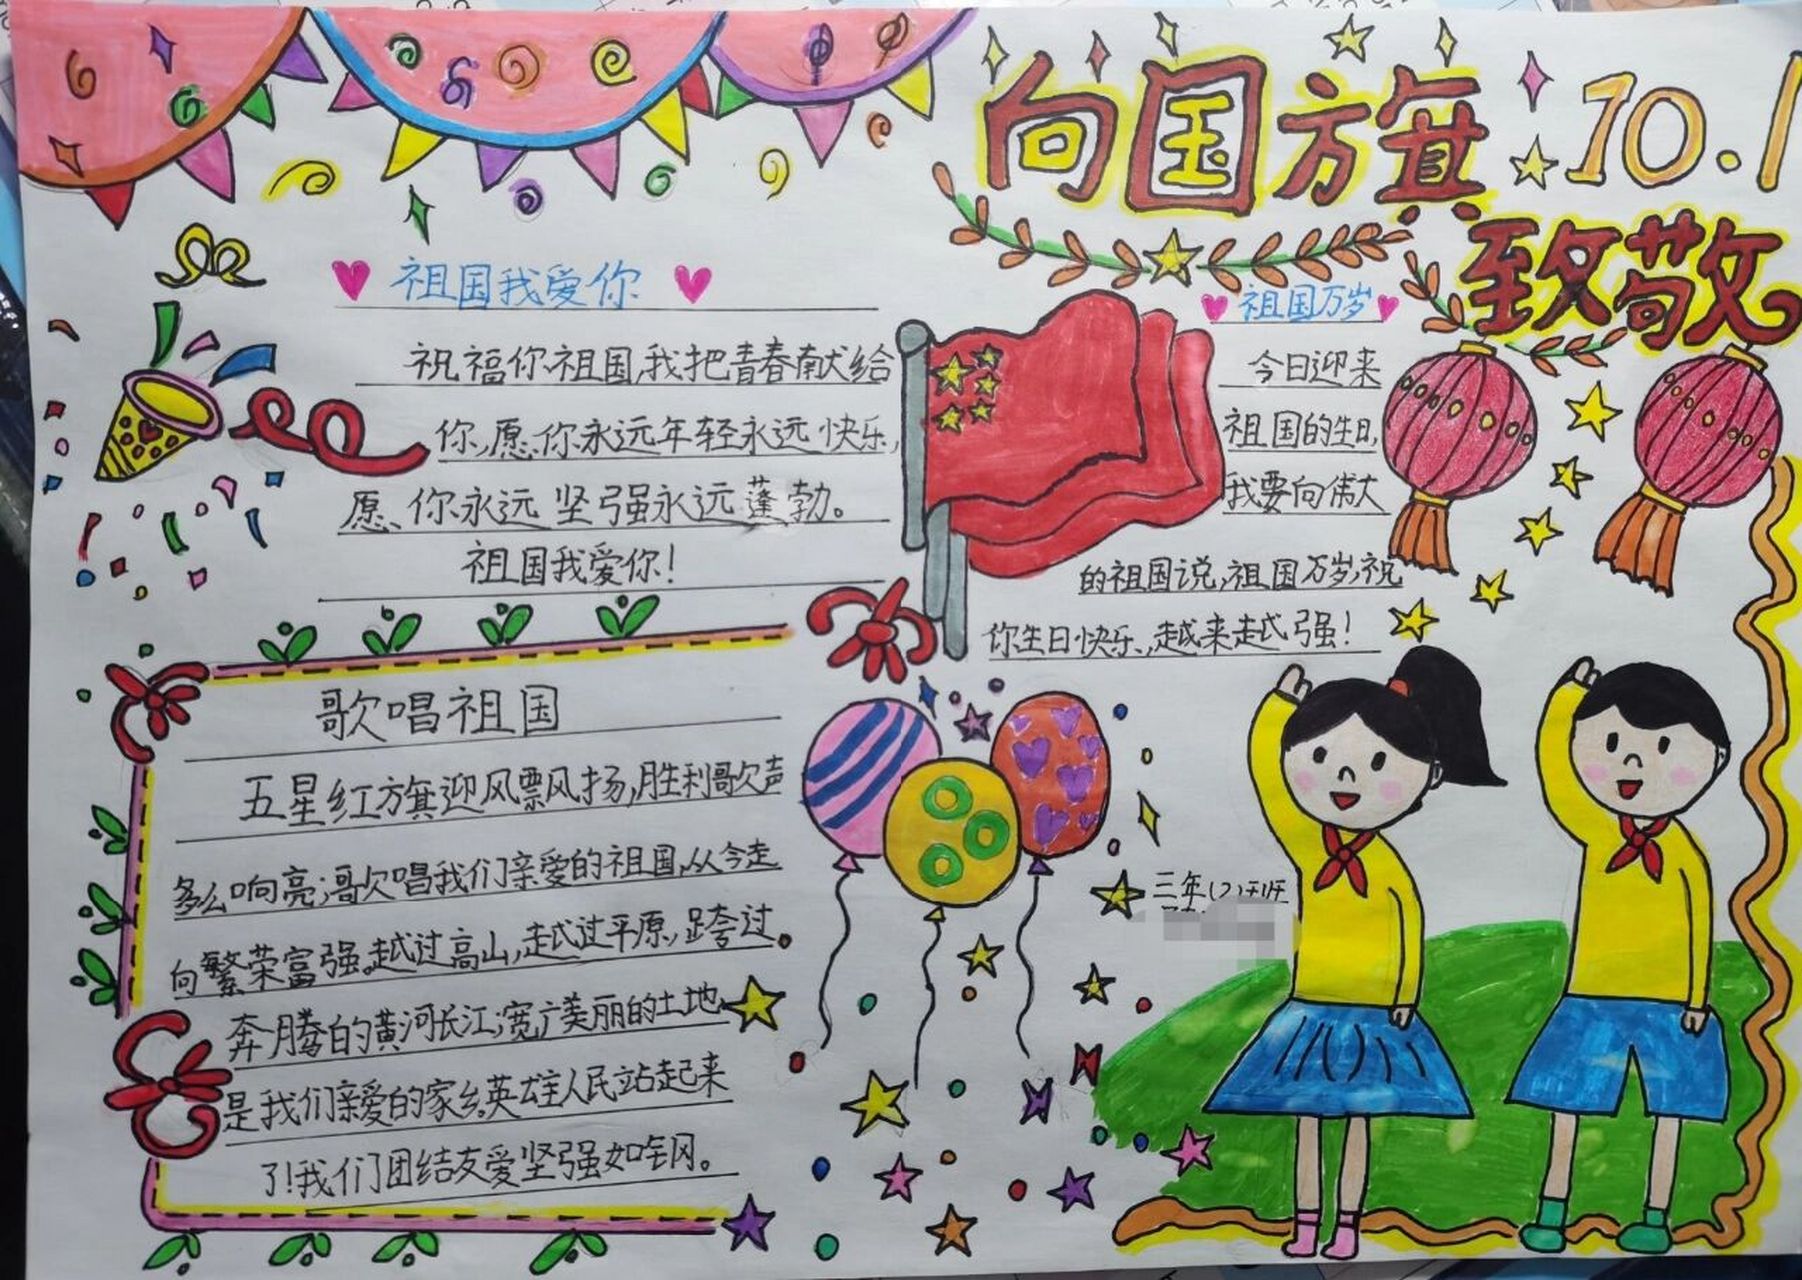 向国旗
10.1
致敬
祖国我爱你
祝福你祖国,我把青春献给
你,愿你永远年轻永远快乐,
愿你永远坚强永远蓬勃。
祖国我爱你!
祖国万岁
今日迎来
祖国的生日,
我要向伟大
的祖国说,祖国万岁,祝
你生日快乐,越来越强!
歌唱祖国
五星红旗迎风飘扬,胜利歌声
多么响亮;歌唱我们亲爱的祖国,从今走
向繁荣富强。越过高山,越过平原,跨过
奔腾的黄河长江;宽广美丽的土地,
是我们亲爱的家乡。英雄人民站起来
了!我们团结友爱坚强如钢。
三年(2)班